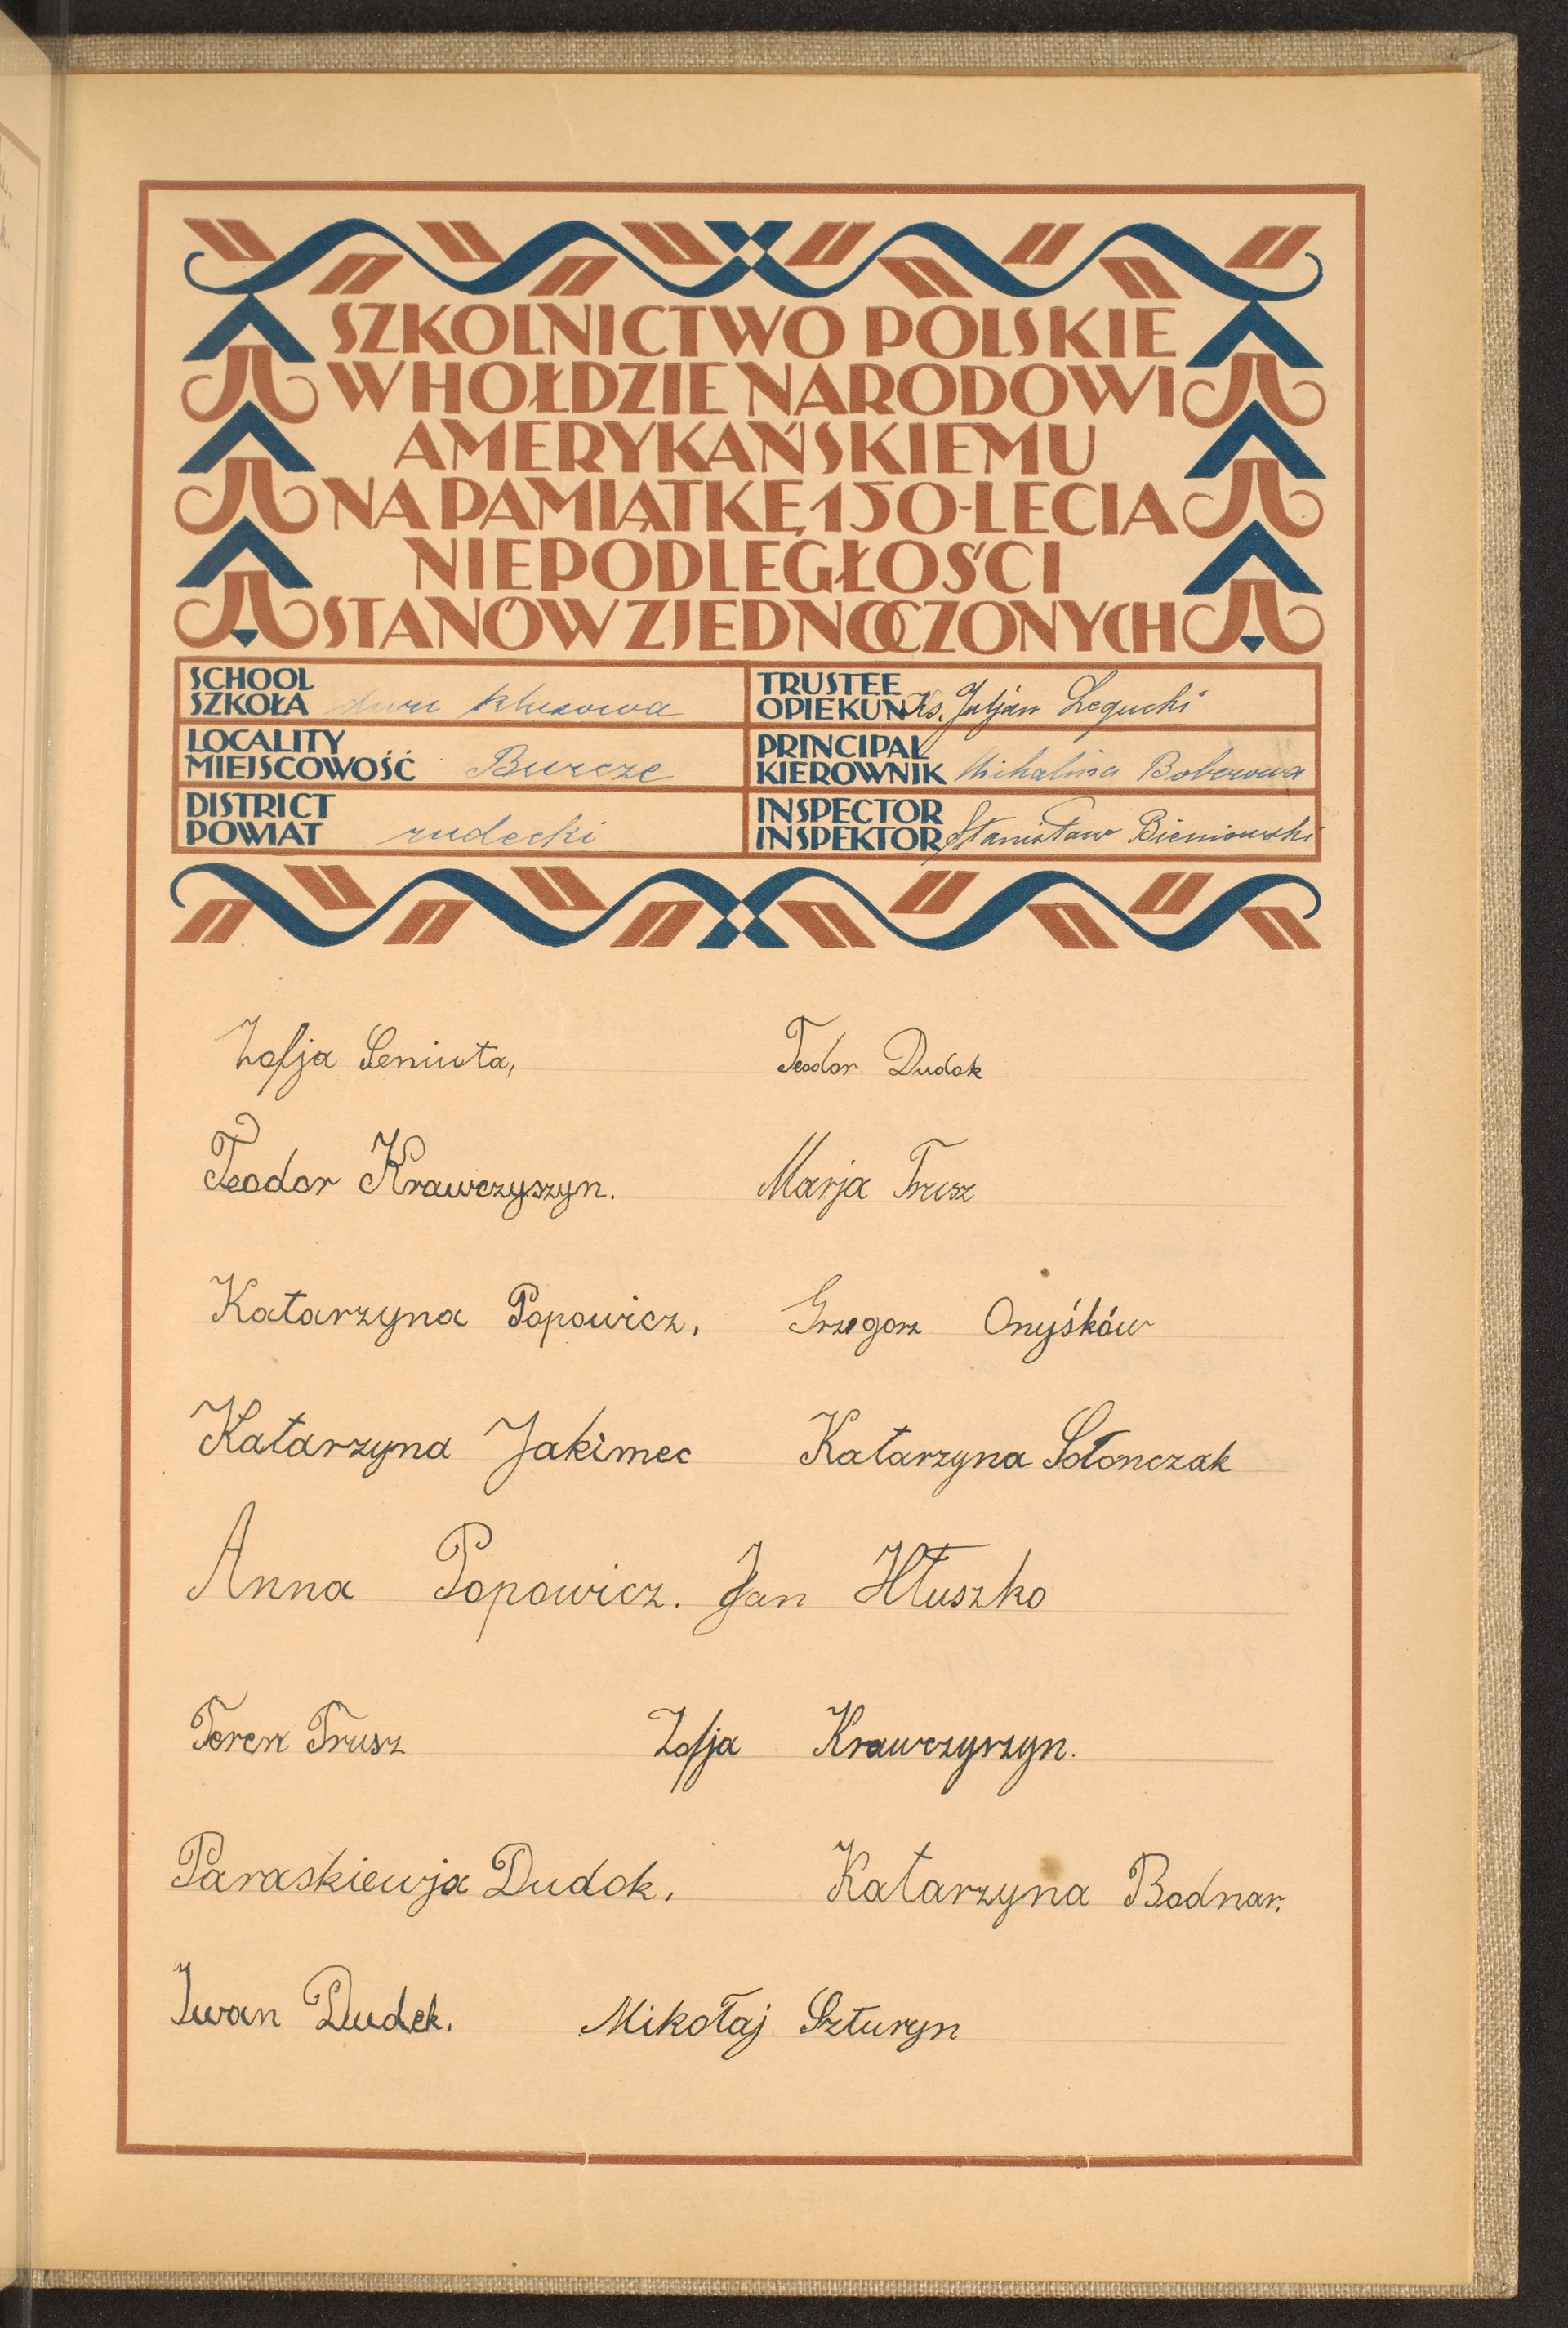 SZKOLNICTWO POLSKIE
W HOŁDZIE NARODOWI
AMERYKAŃSKIEMU
NA PAMIĄTKĘ 150-LECIA
NIEPODLEGŁOŚCI
STANÓW ZJEDNOCZONYCH
SCHOOL
SZKOŁA dwu klasowa
TRUSTEE
OPIEKUN Ks. Juljan Legucki
LOCALITY
MIEJSCOWOŚĆ Burcze
PRINCIPAL
KIEROWNIK Michalina Boberowa
DISTRICT
POWIAT rudecki
INSPECTOR
INSPEKTOR Stanisław Bieniowski
Zofja Seniuta, Teodor Dudok
Teodor Krawczyszyn. Marja Trusz
Katarzyna Popowicz, Grzegorz Onyśków
Katarzyna Jakimec Katarzyna Sołonczak
Anna Popowicz. Jan Hłuszko
Teren Trusz Zofja Krawczyszyn.
Paraskiewja Dudok. Katarzyna Bodnar.
Iwan Dudek. Mikołaj Szturyn